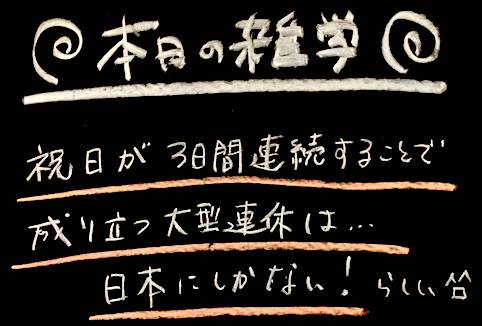 本日の雑学
祝日が3日間連続することで
成り立つ大型連休は…
日本にしかない！らしい